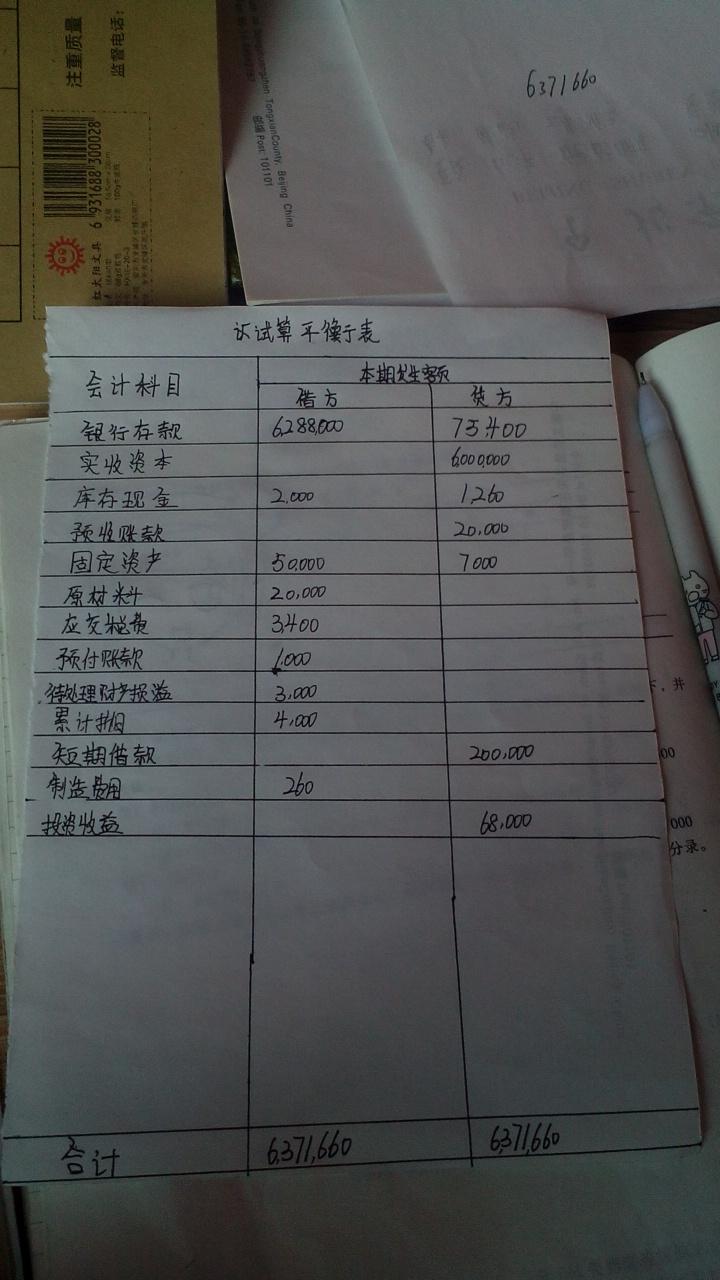 注重质量
监督电话:
6 931688 300028
红太阳文具
TongxianCounty, Beijing China
邮编 Post: 101101
6371660
试算平衡表
会计科目 本期发生额
借方 贷方
银行存款 6,288,000 75,400
实收资本 6,000,000
库存现金 2,000 1,260
预收账款 20,000
固定资产 50,000 7000
原材料 20,000
应交税费 3,400
预付账款 1,000
待处理财产损溢 3,000
累计折旧 4,000
短期借款 200,000
制造费用 260
投资收益 68,000
合计 6,371,660 6,371,660
，并
00
000
分录。